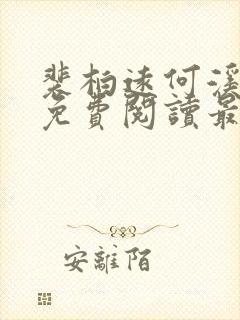 裴柏遠何淫
免費閱讀最
安離陌